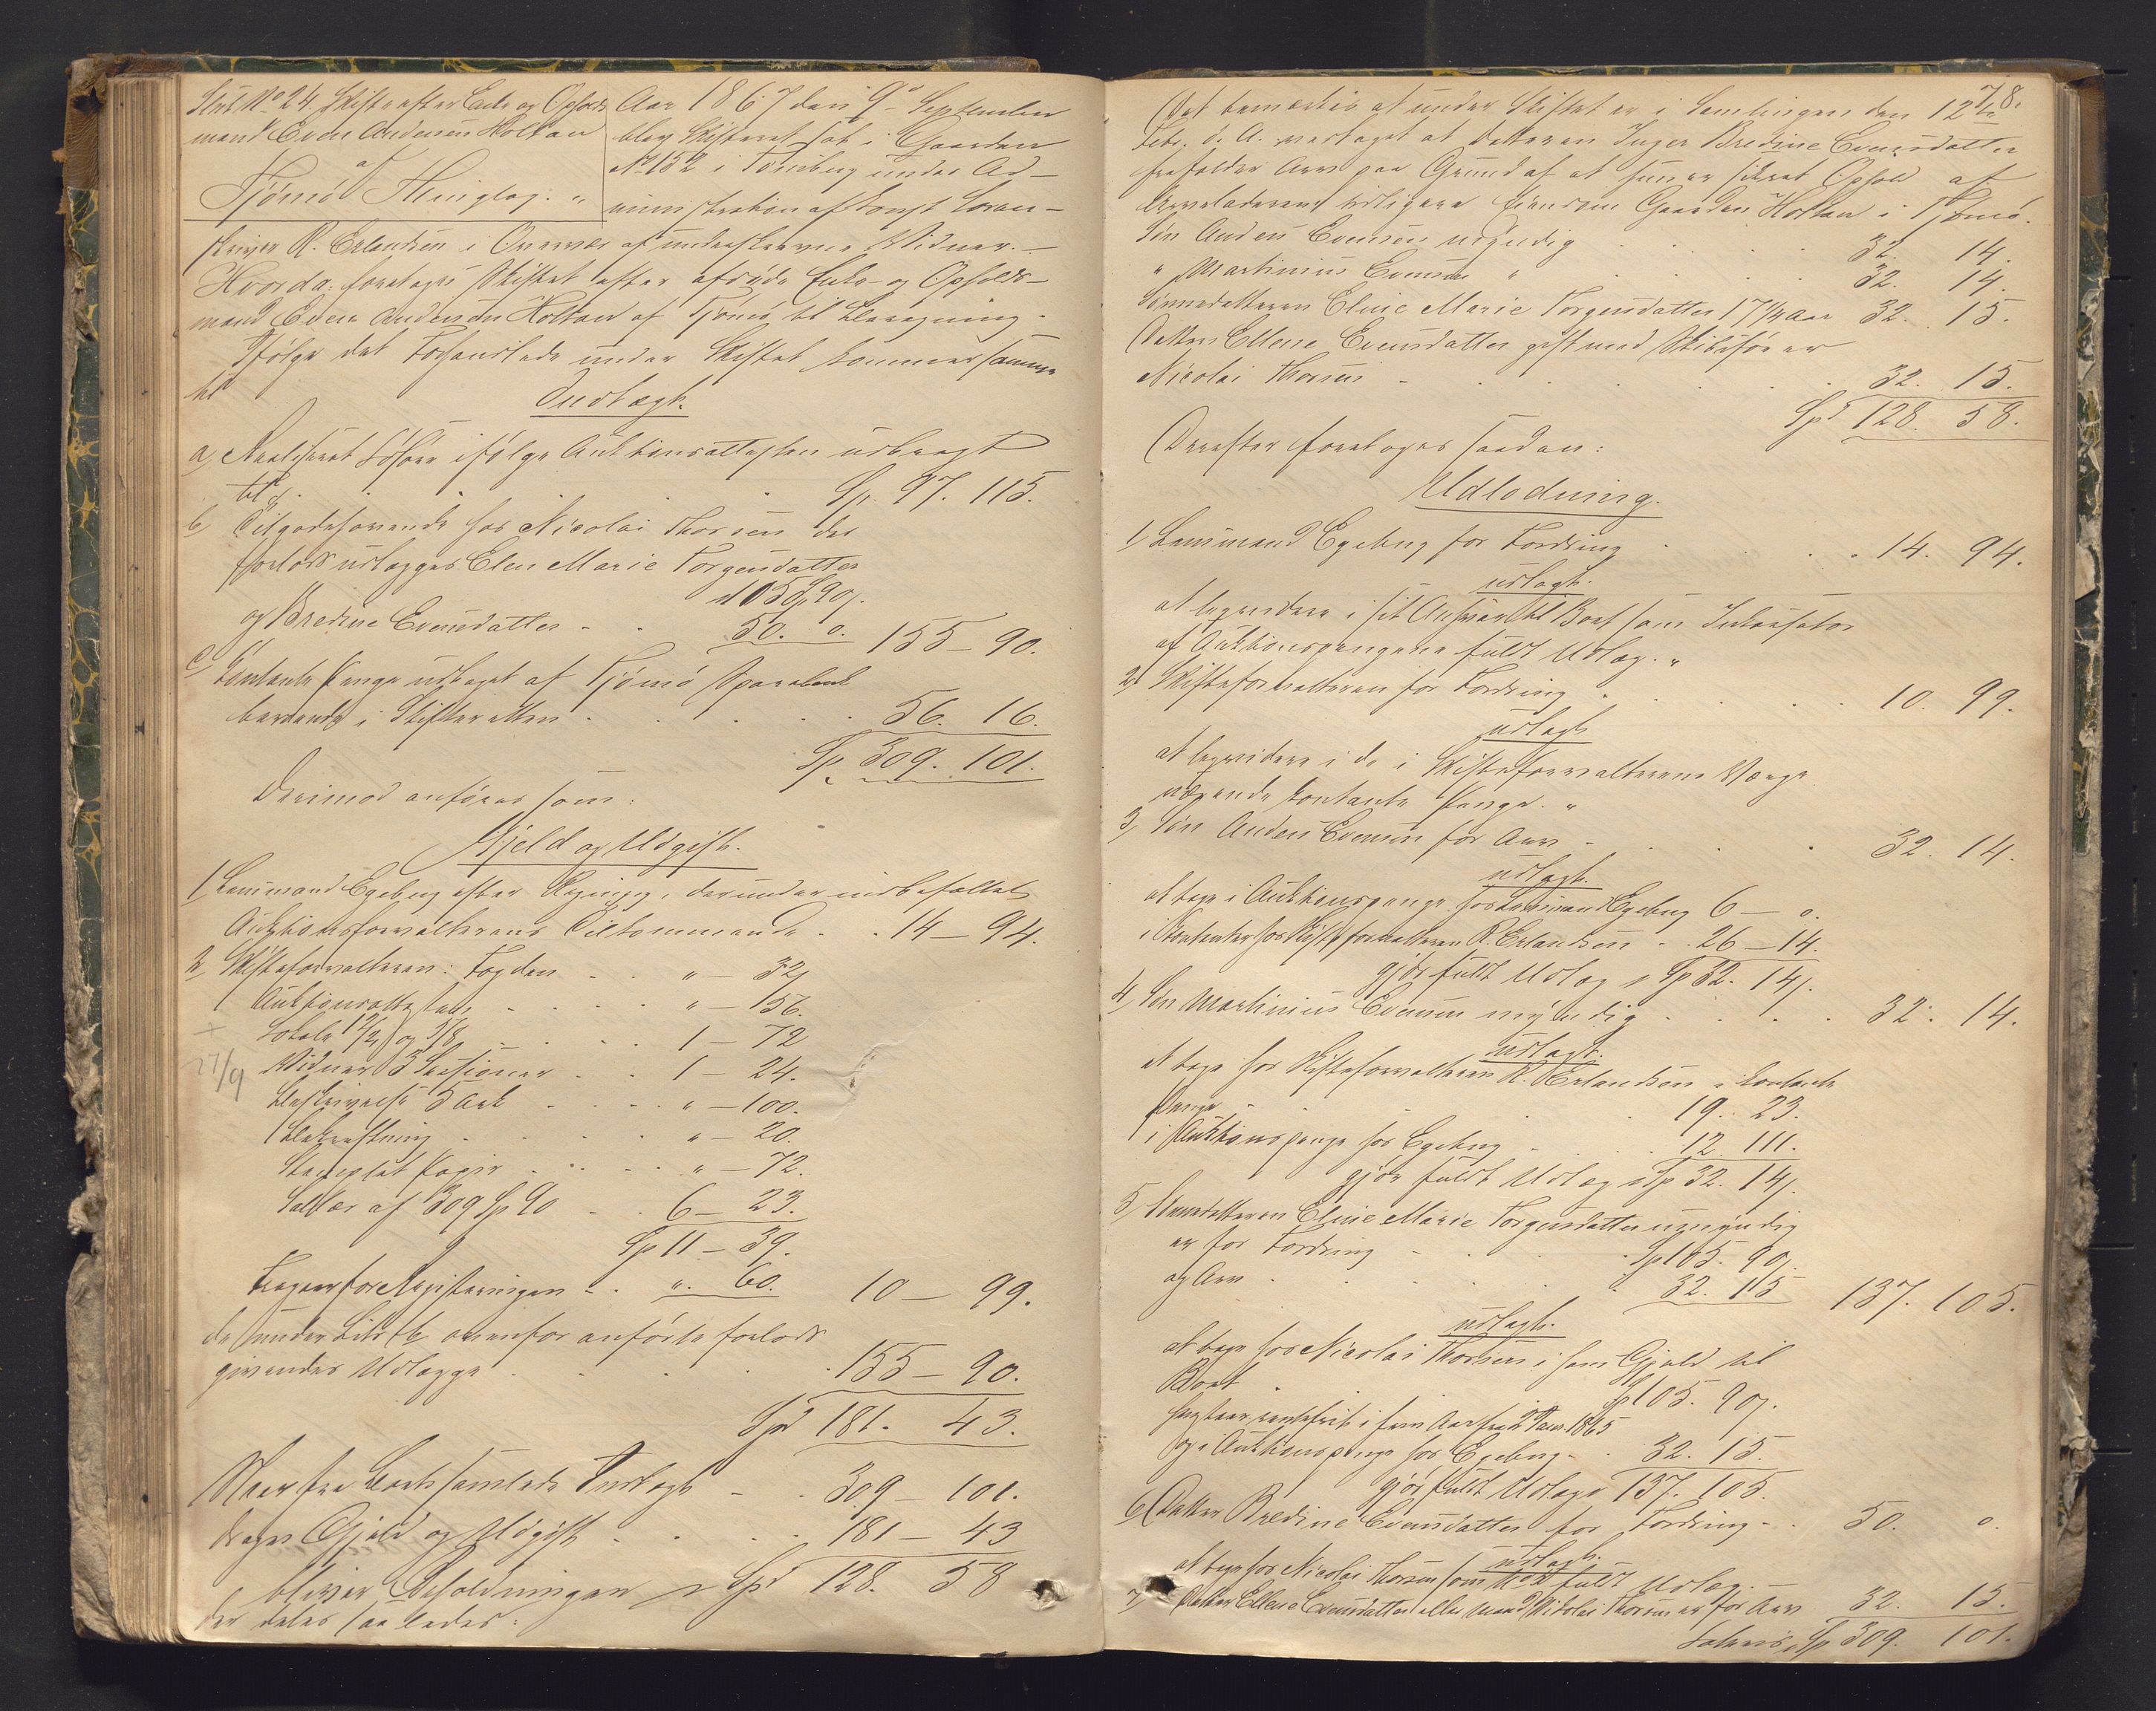 Slut No 24. Skifte efter Enke og Opholds
mand Even Andersen Holtan
af
Tjømø Thinglag. "
Aar 1867 den 9de September
blev Skifteret sat i Gaarden
No 152 i Tønsberg under Ad-
ministration af Soren-
skriver R. Erlandsen i Overvær af underskrevne Vidner. —
Hvorda: foretages Skiftet efter afdøde Enke- og Opholds-
mand Even Andersen Holtan af Tjømø til Beregning.
Ifølge det Forhandlede under Skiftet kommer samme
til
Indtægt.
a, Realiseret Løsøre ifølge Auktionsattesten udbragt
til . . . . Sp. 97. 115.
b, Tilgodehavende hos Nicolai Thorsen der
forlods udlægges Elen Marie Torgersdatter
105 Sp 90.
og Bredine Evensdatter - - 50. 0. 155 - 90.
c, Contante Penge udtaget af Tjømø Sparebank
beroende i Skifteretten . . . . 56. 16.
Sp 309. 101.
Derimod anføres som:
Gjeld og Udgift.
1, Lensmand Egeberg efter Regning, derunder indbefattet
Auktionsforvalterens Tilkommende . . 14 - 94.
2, Skifteforvalteren: Fogden . . " - 32
Auktionsattesten . . . " - 156.
Lokale 12/2 og 3/8 . . . 1 - 72
Vidner 3 Sessioner . . 1 - 24.
27/9
Beskrivelse 5 Ark . . . " - 100.
Bekræftning . . . " - 20.
Stemplet Papir . . . " - 72.
Sallær af 309 Sp 90 . . 6 - 23.
Sp 11 - 39.
Fragaar for Registeringen . . " 60. 10 - 99.
de under Litr b ovenfor anførte forlods
givendes Udlægge . . . 155 - 90.
Spd 181. 43.
Naar fra Boets samlede Indtægt - . 309 - 101.
drages Gjeld og Udgift . . . 181 - 43
bliver Beholdningen Spd 128. 58
der deles saaledes:
78.
Det bemærkes at under Skiftet er i Samlingen den 12te
Febr. d. A. vedtaget at Datteren Inger Bredine Evensdatter
frafalder Arv paa Grund af at hun er sikret Ophold af
Arveladerens tidligere Eiendom Gaarden Holtan i Tjømø.
Søn Anders Evensen myndig . . . 32. 14.
" Martinius Evensen " . . . 32. 14.
Sønnedatteren Eline Marie Torgersdatter 17 1/4 Aar 32. 15.
Datter Ellene Evensdatter gift med Skibsfører
Nicolai Thorsen . . . . 32. 15.
Spd 128. 58.
Derefter foretoges saadan:
Udlodning.
1, Lensmand Egeberg for Fordring . . . 14. 94.
udlagt.
at liqvidere i sit Ansvar til Boet som Inkassator
af Auktionspengene fuldt Udlæg. "
2, Skifteforvalteren for Fordring . . . 10. 99.
udlagt
at liqvidere i de i Skifteforvalterens Værge
værende kontante Penge. "
3, Søn Anders Evensen for Arv - . . 32. 14.
udlagt.
at tage i Auktionspenge hos Lensmand Egeberg 6 - 0.
i Kontanter hos Skifteforvalteren R. Erlandsen . . 26 - 14.
gjør fuldt Udlæg Sp 32. 14.
4, Søn Martinius Evensen myndig . . . 32. 14.
udlagt.
at tage hos Skifteforvalteren R. Erlandsen i kontante
Penge . . . 19. 23.
i Auktionspenge hos Egeberg . . 12. 111.
gjør fuldt Udlæg Sp 32. 14.
5, Sønnedatteren Eline Marie Torgersdatter umyndig
er for Fordring . . . Sp 105. 90.
og Arv . . . 32. 15 137. 105.
udlagt.
at tage hos Nicolai Thorsen i hans Gjeld til
Boet . . . Sp 105. 90.
rentefrit i fem Aar fra 2 Janr 1865
og i Auktionspenge hos Egeberg . . 32. 15.
gjør fuldt Udlæg 137. 105.
6, Datter Bredine Evensdatter for Fordring . . 50. 0.
udlagt.
at tage hos Nicolai Thorsen som fuldt Udlæg. —
7, Datter Ellene Evensdatter eller Mand Nikolai Thorsen er for Arv 32. 15.
Latus Sp 309. 101.